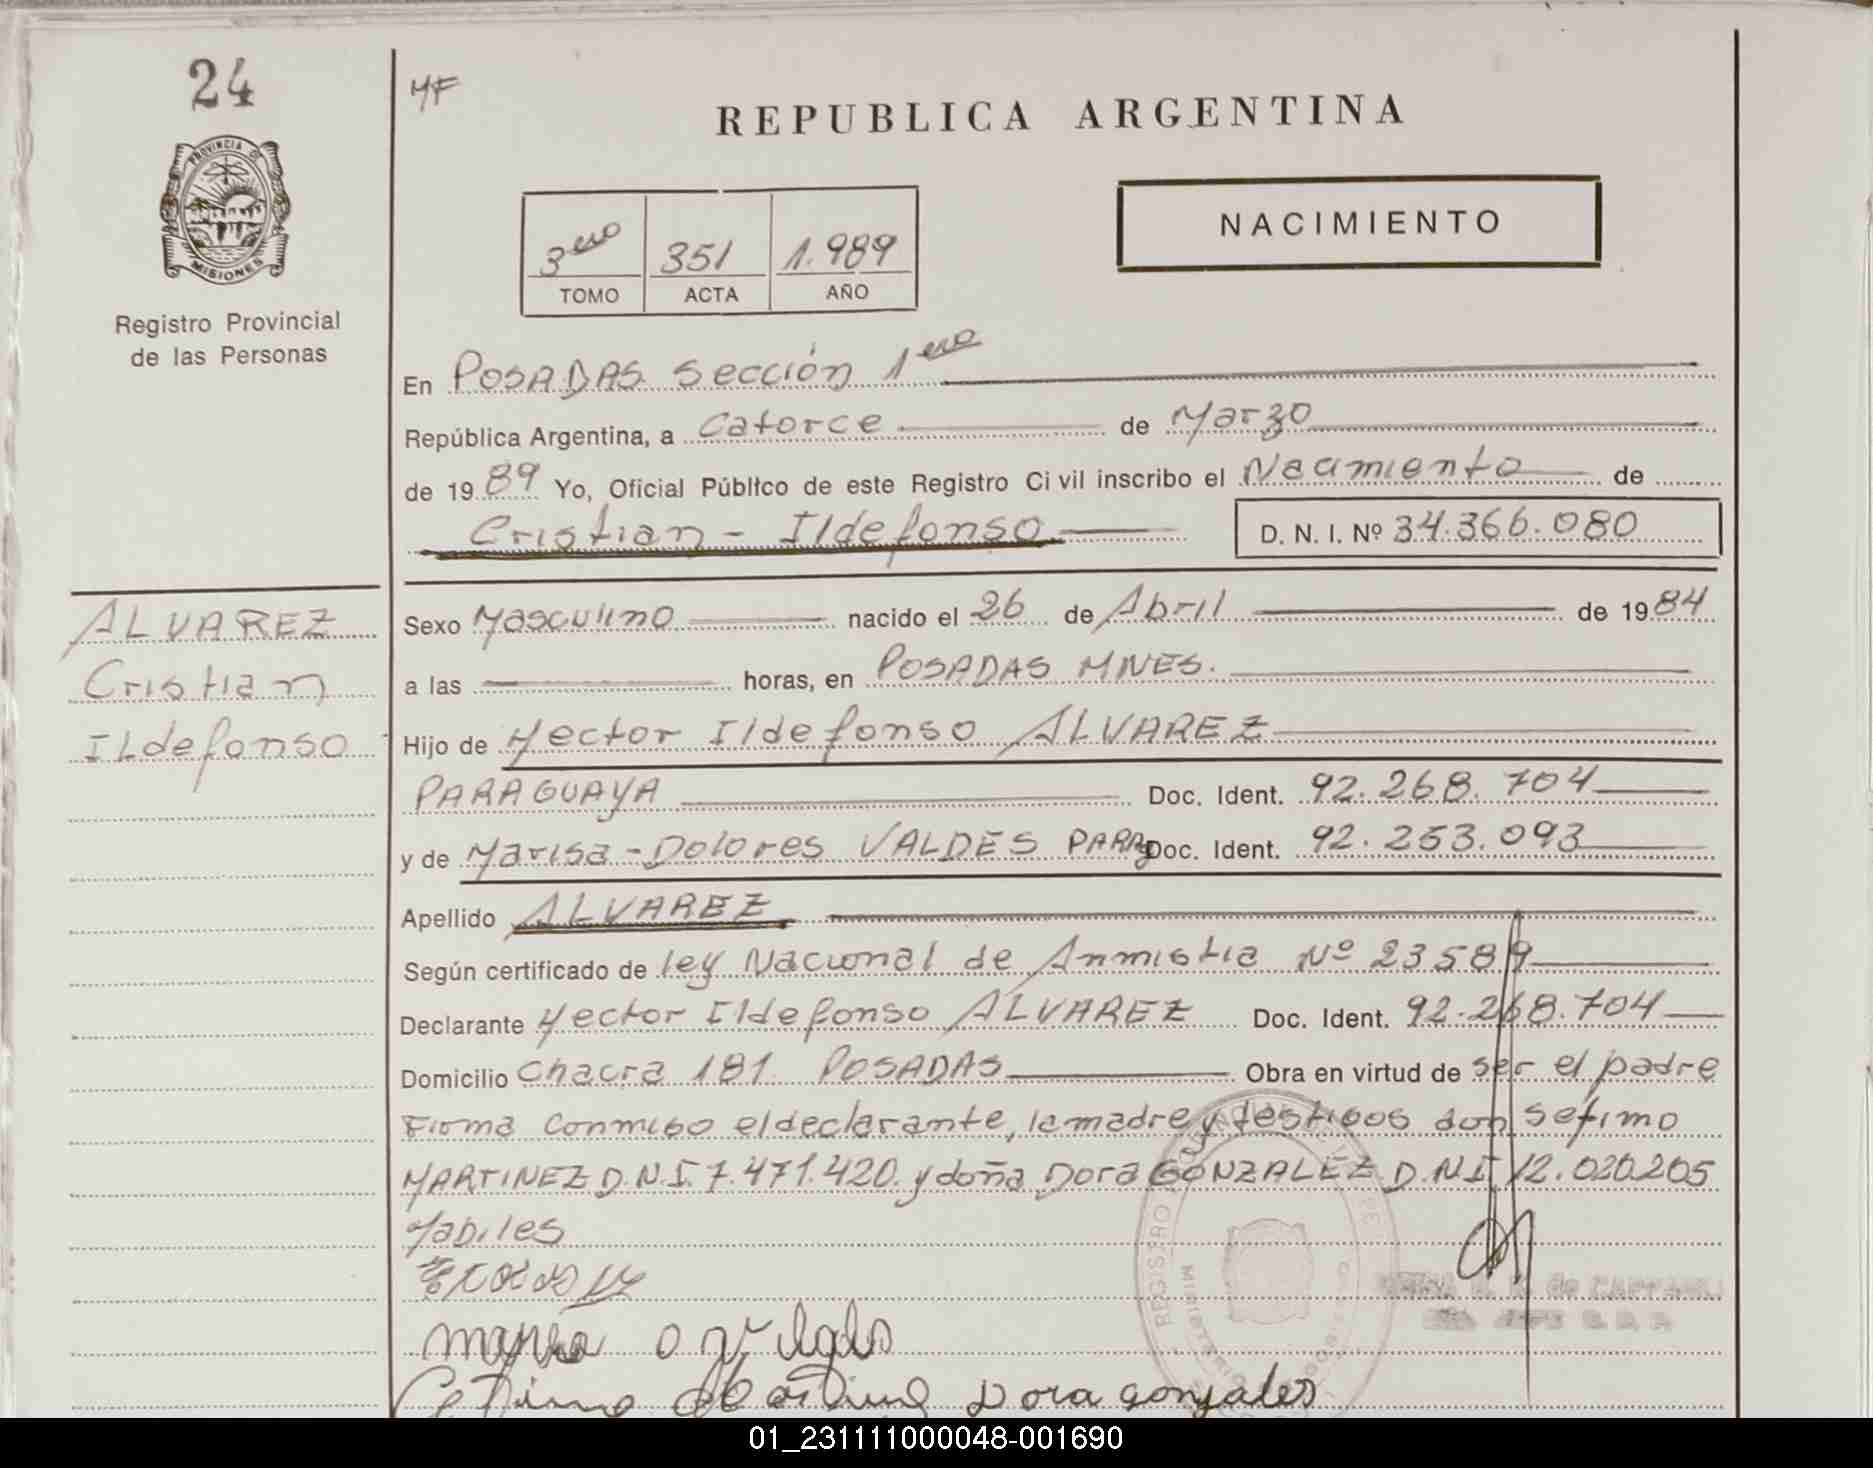 24
MF
REPUBLICA ARGENTINA
PROVINCIA DE
MISIONES
Registro Provincial
de las Personas
3ero 351 1.989
TOMO ACTA AÑO
NACIMIENTO
En POSADAS Sección 1era
República Argentina, a Catorce de Marzo
de 1989 Yo, Oficial Público de este Registro Civil inscribo el Nacimiento de
Cristian - Ildefonso D. N. I. Nº 34.366.080
ALVAREZ
Cristian
ILdefonso
Sexo Masculino nacido el 26 de Abril de 1984
a las horas, en POSADAS MNES.
Hijo de Hector Ildefonso ALVAREZ
PARAGUAYA Doc. Ident. 92.268.704
y de Marisa - Dolores VALDES PARAG Doc. Ident. 92.253.093
Apellido ALVAREZ
Según certificado de ley Nacional de Anmistia Nº 23589
Declarante Hector Ildefonso ALVAREZ Doc. Ident. 92.268.704
Domicilio Chacra 181 POSADAS Obra en virtud de ser el padre
Firma conmigo el declarante, la madre y testigos don Setimo
MARTINEZ D.N.I. 7.471.420. y doña Dora GONZALEZ D.N.I. 12.020.205
Habiles
REGISTRO
Dora gonzales
01_231111000048-001690